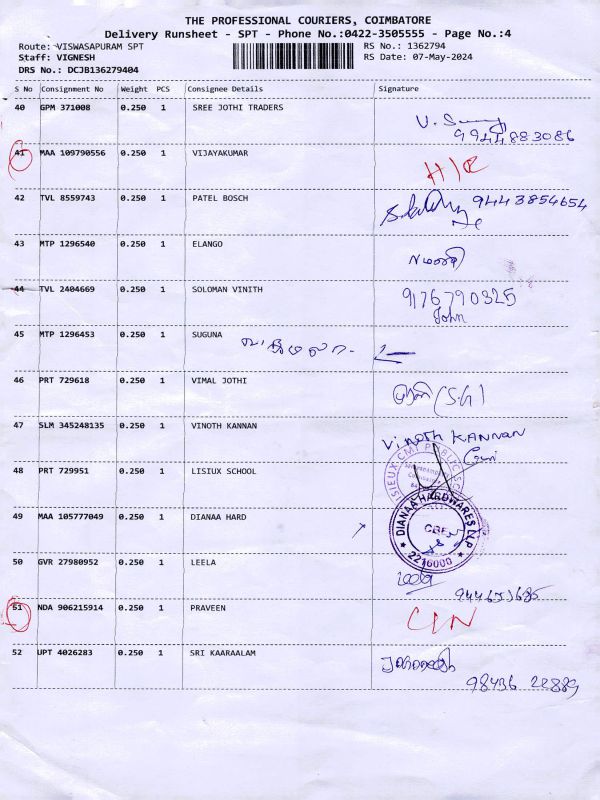 THE PROFESSIONAL COURIERS, COIMBATORE
Delivery Runsheet - SPT - Phone No.:0422-3505555 - Page No.:4
Route: VISWASAPURAM SPT RS No.: 1362794
Staff: VIGNESH RS Date: 07-May-2024
DRS No.: DCJB136279404
S No Consignment No Weight PCS Consignee Details Signature
40 GPM 371008 0.250 1 SREE JOTHI TRADERS
9944883086
41 MAA 109790556 0.250 1 VIJAYAKUMAR
42 TVL 8559743 0.250 1 PATEL BOSCH 9443854654
43 MTP 1296540 0.250 1 ELANGO
44 TVL 2404669 0.250 1 SOLOMAN VINITH 9176790325
John
45 MTP 1296453 0.250 1 SUGUNA
46 PRT 729618 0.250 1 VIMAL JOTHI
47 SLM 345248135 0.250 1 VINOTH KANNAN Vinoth KANNAN
48 PRT 729951 0.250 1 LISIUX SCHOOL
49 MAA 105777049 0.250 1 DIANAA HARD DIANAA HARDWARES
CBE
2216000
50 GVR 27980952 0.250 1 LEELA
51 NDA 906215914 0.250 1 PRAVEEN
52 UPT 4026283 0.250 1 SRI KAARAALAM
98436 22889